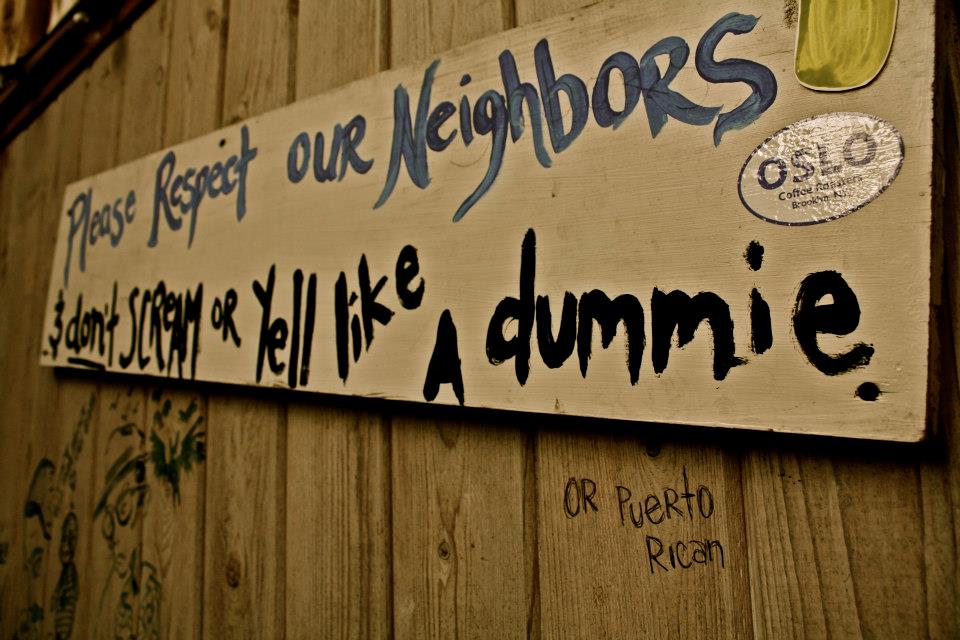 Please Respect OUR NeighboRS
& don't SCREAM OR Yell like A dummie.
OSLO
Coffee Roasters
Brooklyn, NY
OR PUERTO
Rican